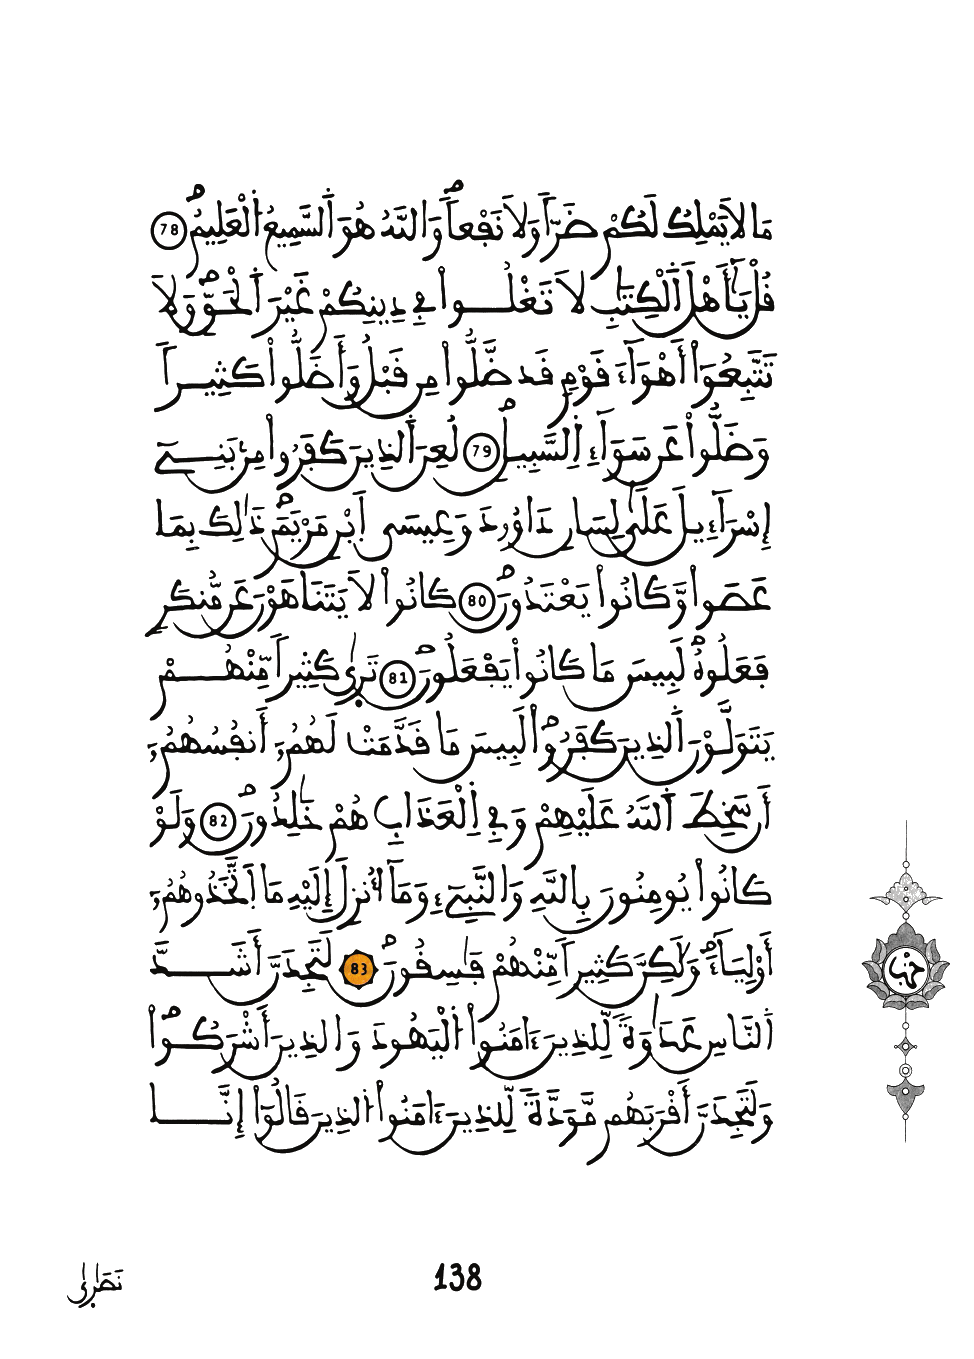 مَا لَا يَمْلِكُ لَكُمْ ضَرّاً وَلَا نَفْعاً وَاللَّهُ هُوَ اَلسَّمِيعُ اُلْعَلِيمُ 78
قُلْ يَٰأَهْلَ اَلْكِتَٰبِ لَا تَغْلُواْ فِي دِينِكُمْ غَيْرَ اَلْحَقِّ وَلَا
تَتَّبِعُوٓاْ أَهْوَآءَ قَوْمٖ قَد ضَّلُّواْ مِن قَبْلُ وَأَضَلُّواْ كَثِيراً
وَضَلُّواْ عَن سَوَآءِ اِلسَّبِيلِ 79 لُعِنَ اَلذِينَ كَفَرُواْ مِنۢ بَنِےٓ
إِسْرَآءِيلَ عَلَىٰ لِسَانِ دَاوُۥدَ وَعِيسَى اَبْنِ مَرْيَمَ ذَٰلِكَ بِمَا
عَصَواْ وَّكَانُواْ يَعْتَدُونَ 80 كَانُواْ لَا يَتَنَاهَوْنَ عَن مُّنكَرٖ
فَعَلُوهُ لَبِيسَ مَا كَانُواْ يَفْعَلُونَ 81 تَرَىٰ كَثِيراً مِّنْهُمْ
يَتَوَلَّوْنَ اَلذِينَ كَفَرُواْ لَبِيسَ مَا قَدَّمَتْ لَهُمُۥٓ أَنفُسُهُمُۥٓ
أَن سَخِطَ اَللَّهُ عَلَيْهِمْ وَفِي اِلْعَذَابِ هُمْ خَٰلِدُونَ 82 وَلَوْ
كَانُواْ يُومِنُونَ بِاللَّهِ وَالنَّبِيٓءِ وَمَآ أُنزِلَ إِلَيْهِ مَا اَتَّخَذُوهُمُۥٓ
أَوْلِيَآءَ وَلَٰكِنَّ كَثِيراً مِّنْهُمْ فَٰسِقُونَ 83 لَتَجِدَنَّ أَشَدَّ
اَلنَّاسِ عَدَٰوَةً لِّلذِينَ ءَامَنُواْ اُلْيَهُودَ وَالذِينَ أَشْرَكُواْ
وَلَتَجِدَنَّ أَقْرَبَهُم مَّوَدَّةً لِّلذِينَ ءَامَنُواْ اُلذِينَ قَالُوٓاْ إِنَّا
حزب
نَصَٰرَىٰ
138